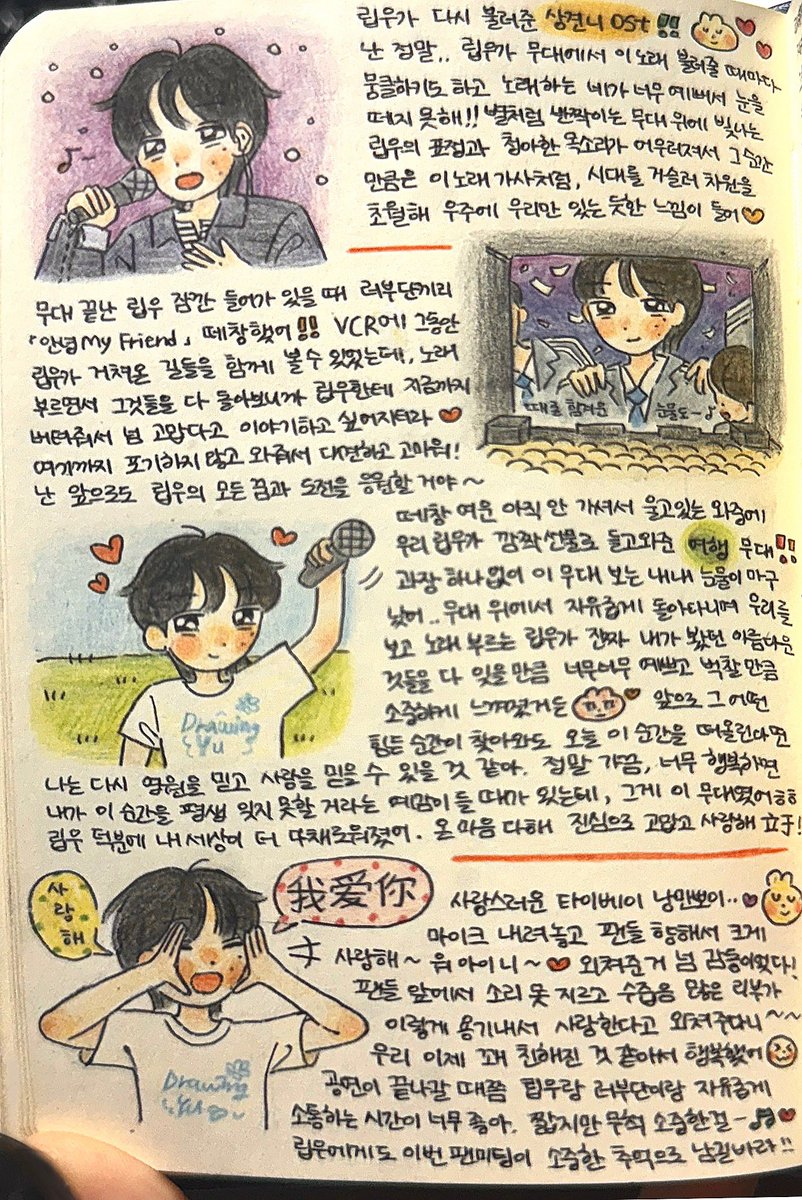 립우가 다시 불러준 상견니 OST !!
난 정말.. 립우가 무대에서 이 노래 불러줄 때마다
뭉클하기도 하고 노래하는 네가 너무 예뻐서 눈을
떼지 못해!! 별처럼 반짝이는 무대 위에 빛나는
립우의 표정과 청아한 목소리가 어우러져서 그 순간
만큼은 이 노래 가사처럼, 시대를 거슬러 차원을
초월해 우주에 우리만 있는 듯한 느낌이 들어
무대 끝난 립우 잠깐 들어가 있을 때 러부단끼리
「안녕 My Friend」 떼창했어!! VCR에 그동안
립우가 거쳐온 길들을 함께 볼 수 있었는데, 노래
부르면서 그것들을 다 돌아보니까 립우한테 지금까지
버텨줘서 넘 고맙다고 이야기하고 싶어지더라
여기까지 포기하지 않고 와줘서 대견하고 고마워!
난 앞으로도 립우의 모든 꿈과 도전을 응원할 거야~
때로 힘겨운 눈물도~♪
떼창 여운 아직 안 가셔서 울고있는 와중에
우리 립우가 깜짝선물로 들고와준 여행 무대!!
과장 하나 없이 이 무대 보는 내내 눈물이 마구
났어.. 무대 위에서 자유롭게 돌아다니며 우리를
보고 노래 부르는 립우가 진짜 내가 봤던 아름다운
것들을 다 잊을 만큼 너무너무 예쁘고 벅찰 만큼
소중하게 느껴졌거든 앞으로 그 어떤
힘든 순간이 찾아와도 오늘 이 순간을 떠올린다면
나는 다시 영원을 믿고 사랑을 믿을 수 있을 것 같아. 정말 가끔, 너무 행복하면
내가 이 순간을 평생 잊지 못할 거라는 예감이 들 때가 있는데, 그게 이 무대였어ㅎㅎ
립우 덕분에 내 세상이 더 다채로워졌어. 온 마음 다해 진심으로 고맙고 사랑해 立于!
Drawing
Yu
사랑해
我爱你
Drawing
Yu
사랑스러운 타이베이 낭만뽀이..
마이크 내려놓고 팬들 향해서 크게
사랑해~ 워 아이 니~ 외쳐준 거 넘 감동이었다!
팬들 앞에서 소리 못 지르고 수줍음 많은 리부가
이렇게 용기내서 사랑한다고 외쳐주다니~~
우리 이제 꽤 친해진 것 같아서 행복했어
공연이 끝나갈 때쯤 립우랑 러부단이랑 자유롭게
소통하는 시간이 너무 좋아. 짧지만 무척 소중한걸-♫
립우에게도 이번 팬미팅이 소중한 추억으로 남길바라!!